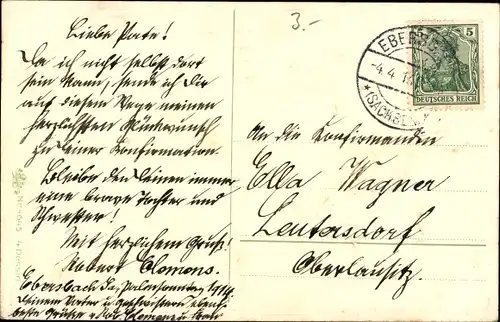 Liebe Pate!
Da ich nicht selbst dort
sein kann, sende ich Dir
auf diesem Wege meinen
herzlichsten Glückwunsch
zu Deiner Konfirmation.
Bleibe den Deinen immer
eine brave Tochter und
Schwester!
Mit herzlichem Gruß!
Robert Clemens.
Ebersbach Sa, Palmsonntag 1914
Deinem Vater u. Geschwistern
beste Grüße v. Rob. Clemens u. Frau
3.-
EBERSB
-4.4.14
*(SACHSEN)
5
DEUTSCHES REICH
An die Konfirmandin
Ella Wagner
Leutersdorf
Oberlausitz.